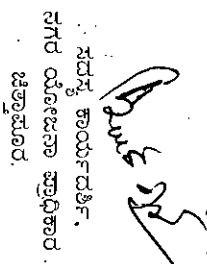 ಸದಸ್ಯ ಕಾರ್ಯದರ್ಶಿ.
ನಗರ ಯೋಜನಾ ಪ್ರಾಧಿಕಾರ.
ಚಿತ್ತಾಪೂರ.